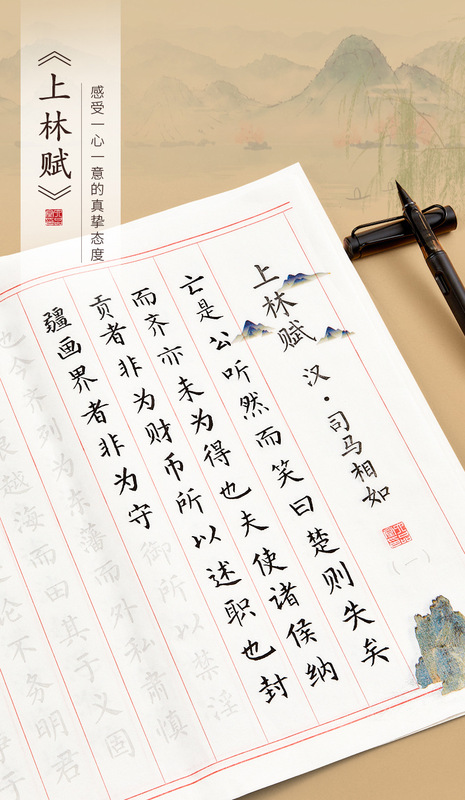 《上林赋》
感受一心一意的真挚态度
上林赋
汉·司马相如
（一）
亡是公听然而笑曰楚则失矣
而齐亦未为得也夫使诸侯纳
贡者非为财币所以述职也封
疆画界者非为守御所以禁淫
也今齐列为东藩而外私肃慎
限越海而田其于义固
论不务明君
争于